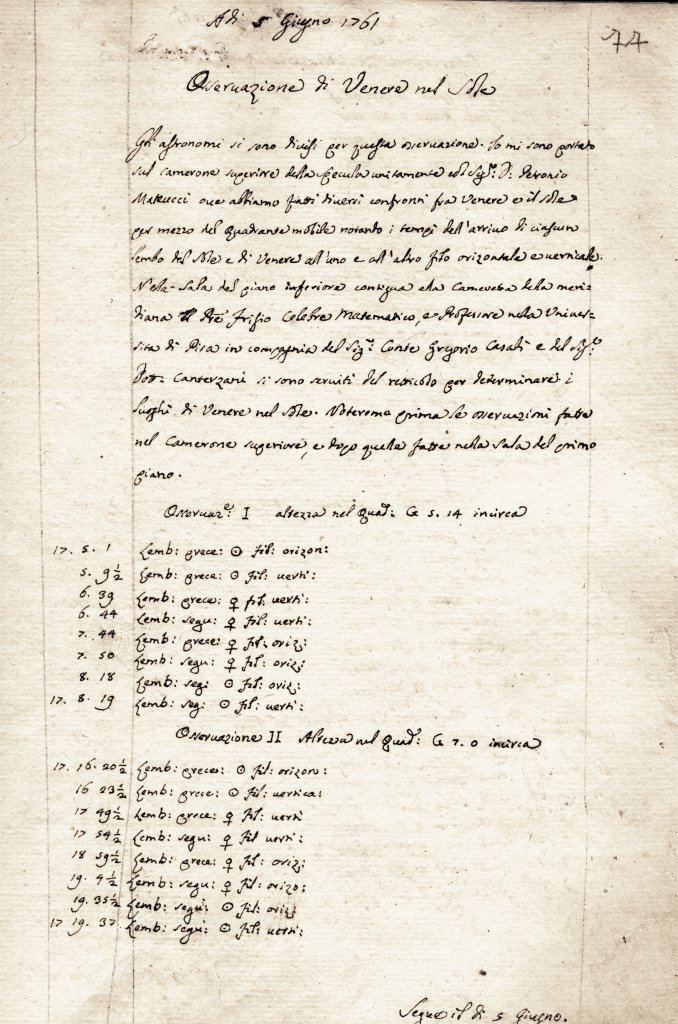 Adi 5 Giugno 1761
77
Osseruazione di Venere nel Sole
Gli astronomi si sono diuisi per questa osseruazione. Io mi sono portato
sul camerone superiore della specula unitamente col Sigr. D: Petronio
Mateucci oue abbiamo fatti diuersi confronti fra Venere e il sole
per mezzo del Quadrante mobile notando i tempi dell'arriuo di ciascun
lembo del Sole e di Venere all'uno e all'altro filo orizontale e verticale.
Nella Sala del piano inferiore contigua alla Camera della meri-
diana Il Pre Frisio Celebre Matematico, e Professore nella Uniuer-
sita di Pisa in compagnia del Sigr. Conte Gregorio Casali e del Sigr.
Dott: Canterzani si sono seruiti del reticolo per determinare i
luoghi di Venere nel Sole. Noteremo prima le osseruazioni fatte
nel Camerone superiore, e dopo quelle fatte nella Sala del primo
piano.
Osseruaze. I altezza nel Quad: G 5. 14 incirca
17. 5. 1 Lemb: prece: ☉ fil: orizon:
5. 9½ Lemb: prece: ☉ fil: uerti:
6. 39 Lemb: prece: ♀ fil: uerti:
6. 44 Lemb: segu: ♀ fil: uerti:
7. 44 Lemb: prece: ♀ fil: oriz:
7. 50 Lemb: segu: ♀ fil: oriz:
8. 18 Lemb: seg: ☉ fil: oriz:
17. 8. 19 Lemb: seg: ☉ fil: uerti:
Osseruazione II Altezza nel Quad: G 7. 0 incirca
17. 16. 20½ Lemb: prece: ☉ fil: orizon:
16 23½ Lemb: prece: ☉ fil: uertica:
17 49½ Lemb: prece: ♀ fil: uerti
17 54½ Lemb: segu: ♀ fil uerti:
18 59½ Lemb: prece: ♀ fil: oriz:
19. 4½ Lemb: segu: ♀ fil: orizo:
19. 35½ Lemb: segu: ☉ fil: oriz:
17 19. 37 Lemb: segu: ☉ fil: uerti:
Segue il di 5 Giugno.